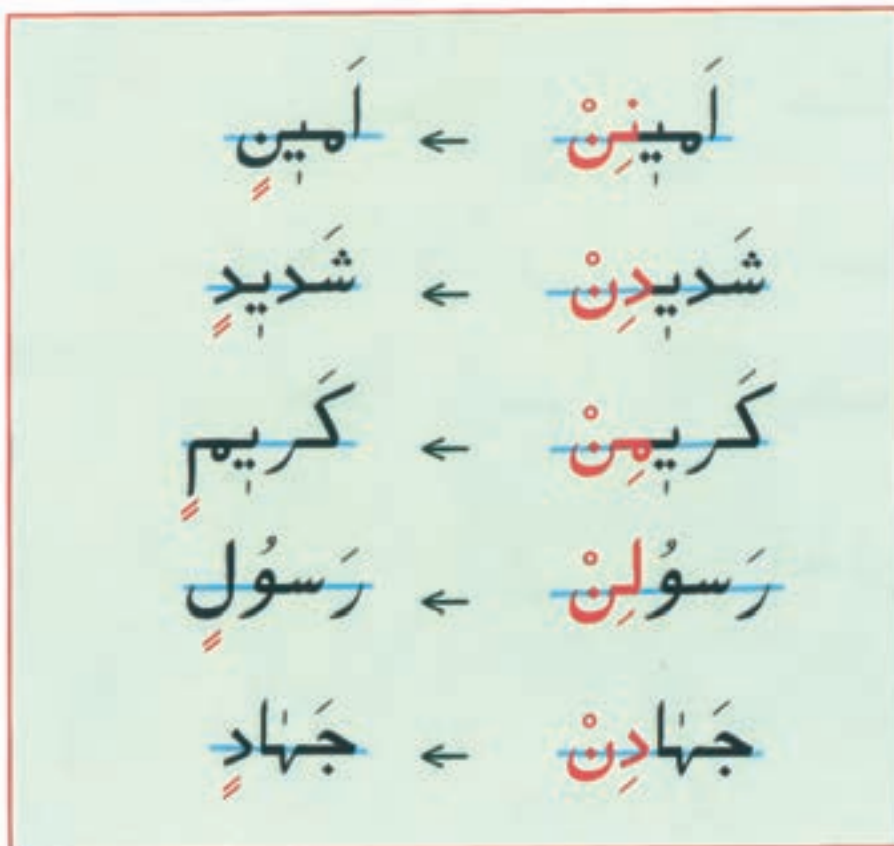 اَمیٖنِنْ ← اَمیٖنٍ
شَدیٖدِنْ ← شَدیٖدٍ
كَریٖمِنْ ← كَریٖمٍ
رَسوُلِنْ ← رَسوُلٍ
جَهٰادِنْ ← جَهٰادٍ